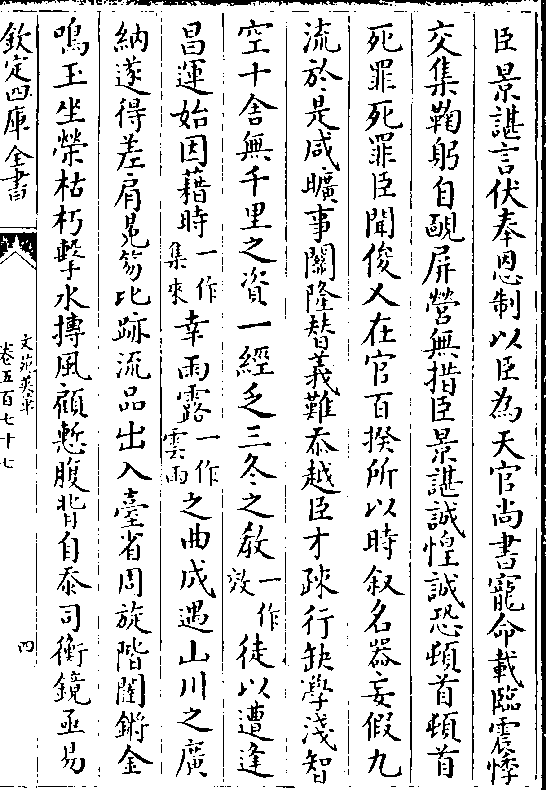 臣景諶言伏奉恩制以臣為天官尚書寵命載臨震悸
交集鞠躬自䩄屏營無措臣景諶誠惶誠恐頓首頓首
死罪死罪臣聞俊乂在官百揆所以時叙名器妄假九
流於是咸曠事關隆替義難忝越臣才疎行缺學淺智
空十舍無千里之資一經乏三冬之敎一作效徒以遭逢
昌運始因藉時一作集來幸雨露一作雲雨之曲成遇山川之廣
納遂得差肩冕笏比跡流品出入臺省周旋階闥鏘金
鳴玉坐榮枯朽擊水摶風顧慙腹背自忝司衡鏡亟易
欽定四庫全書
文苑英華
卷五百七十七
四